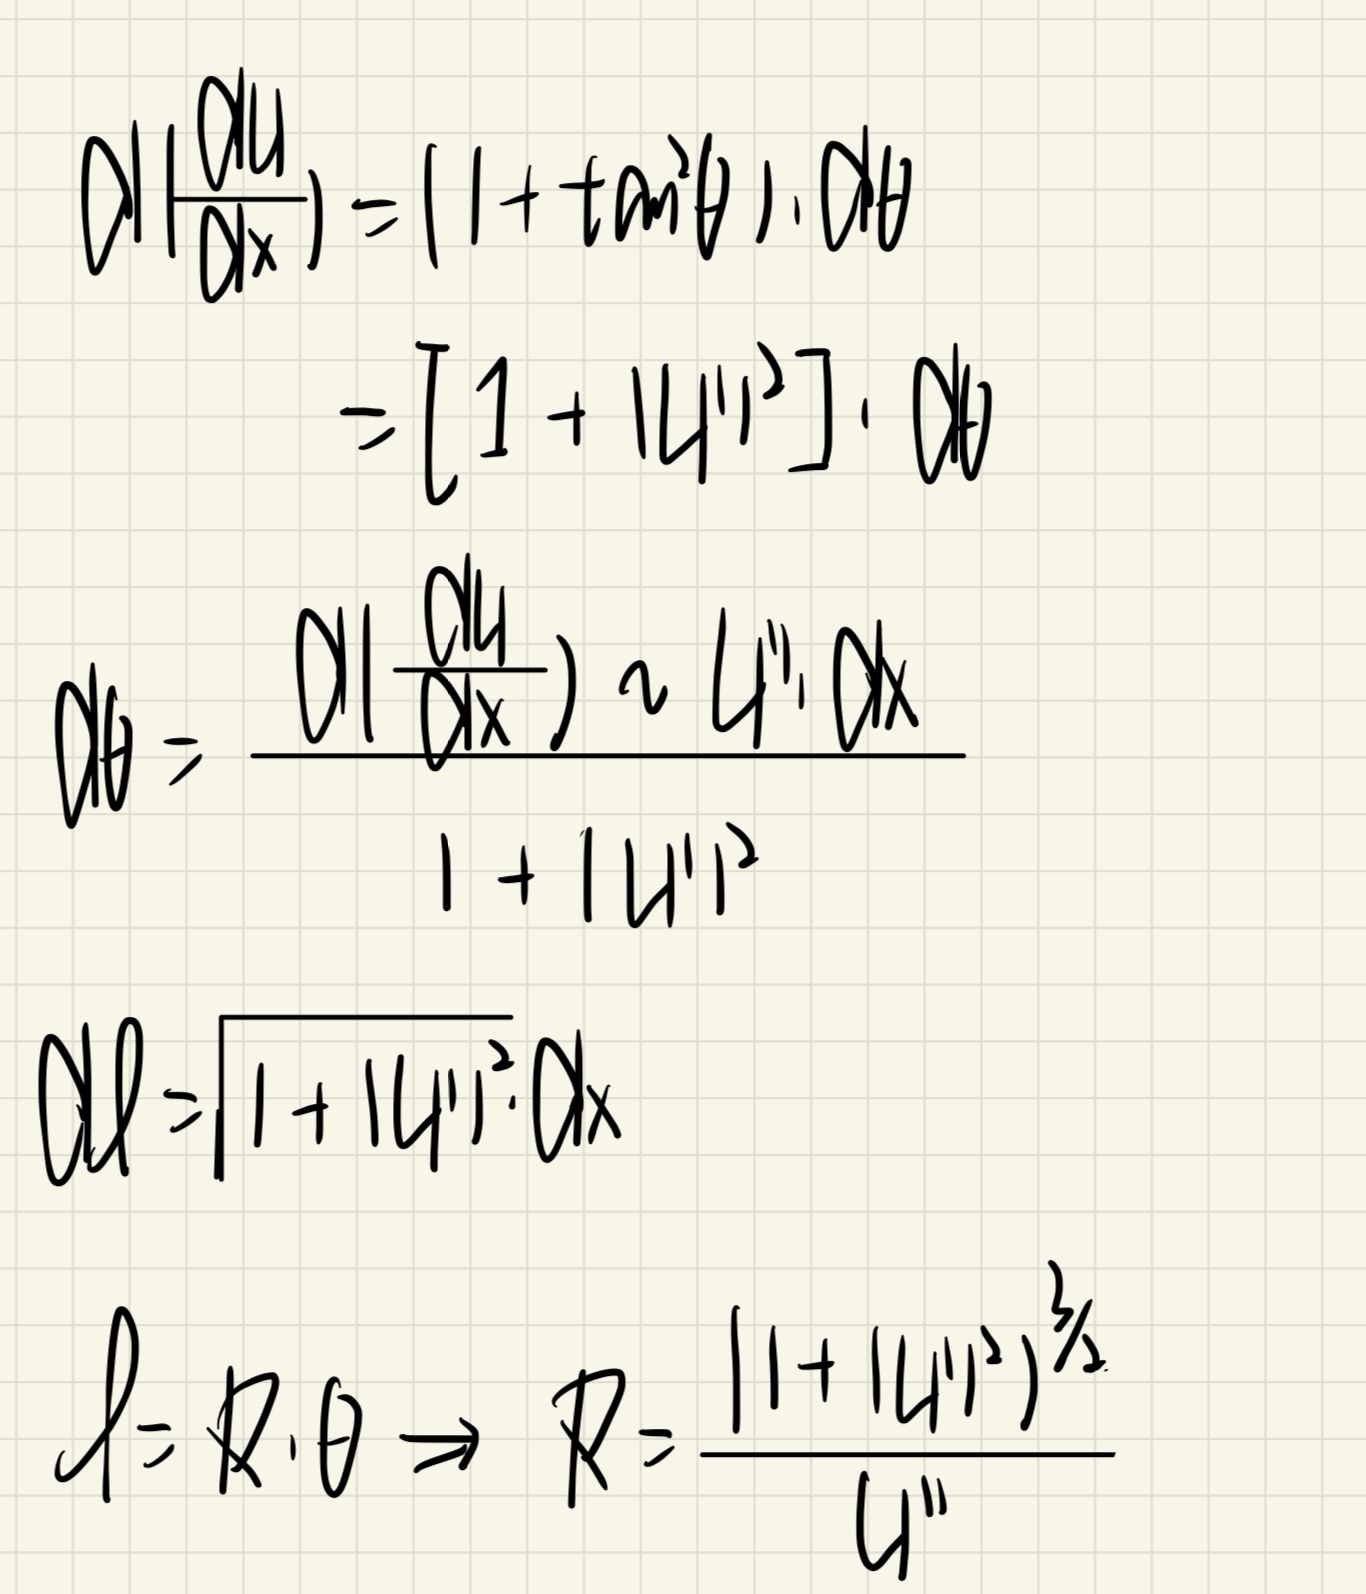 d(dy/dx) = (1 + tan²θ) · dθ
= [1 + (y')²] · dθ
dθ = (d(dy/dx) ~ y'' · dx) / (1 + (y')²)
dl = √(1 + (y')²) · dx
l = R · θ → R = (1 + (y')²)^(3/2) / y''